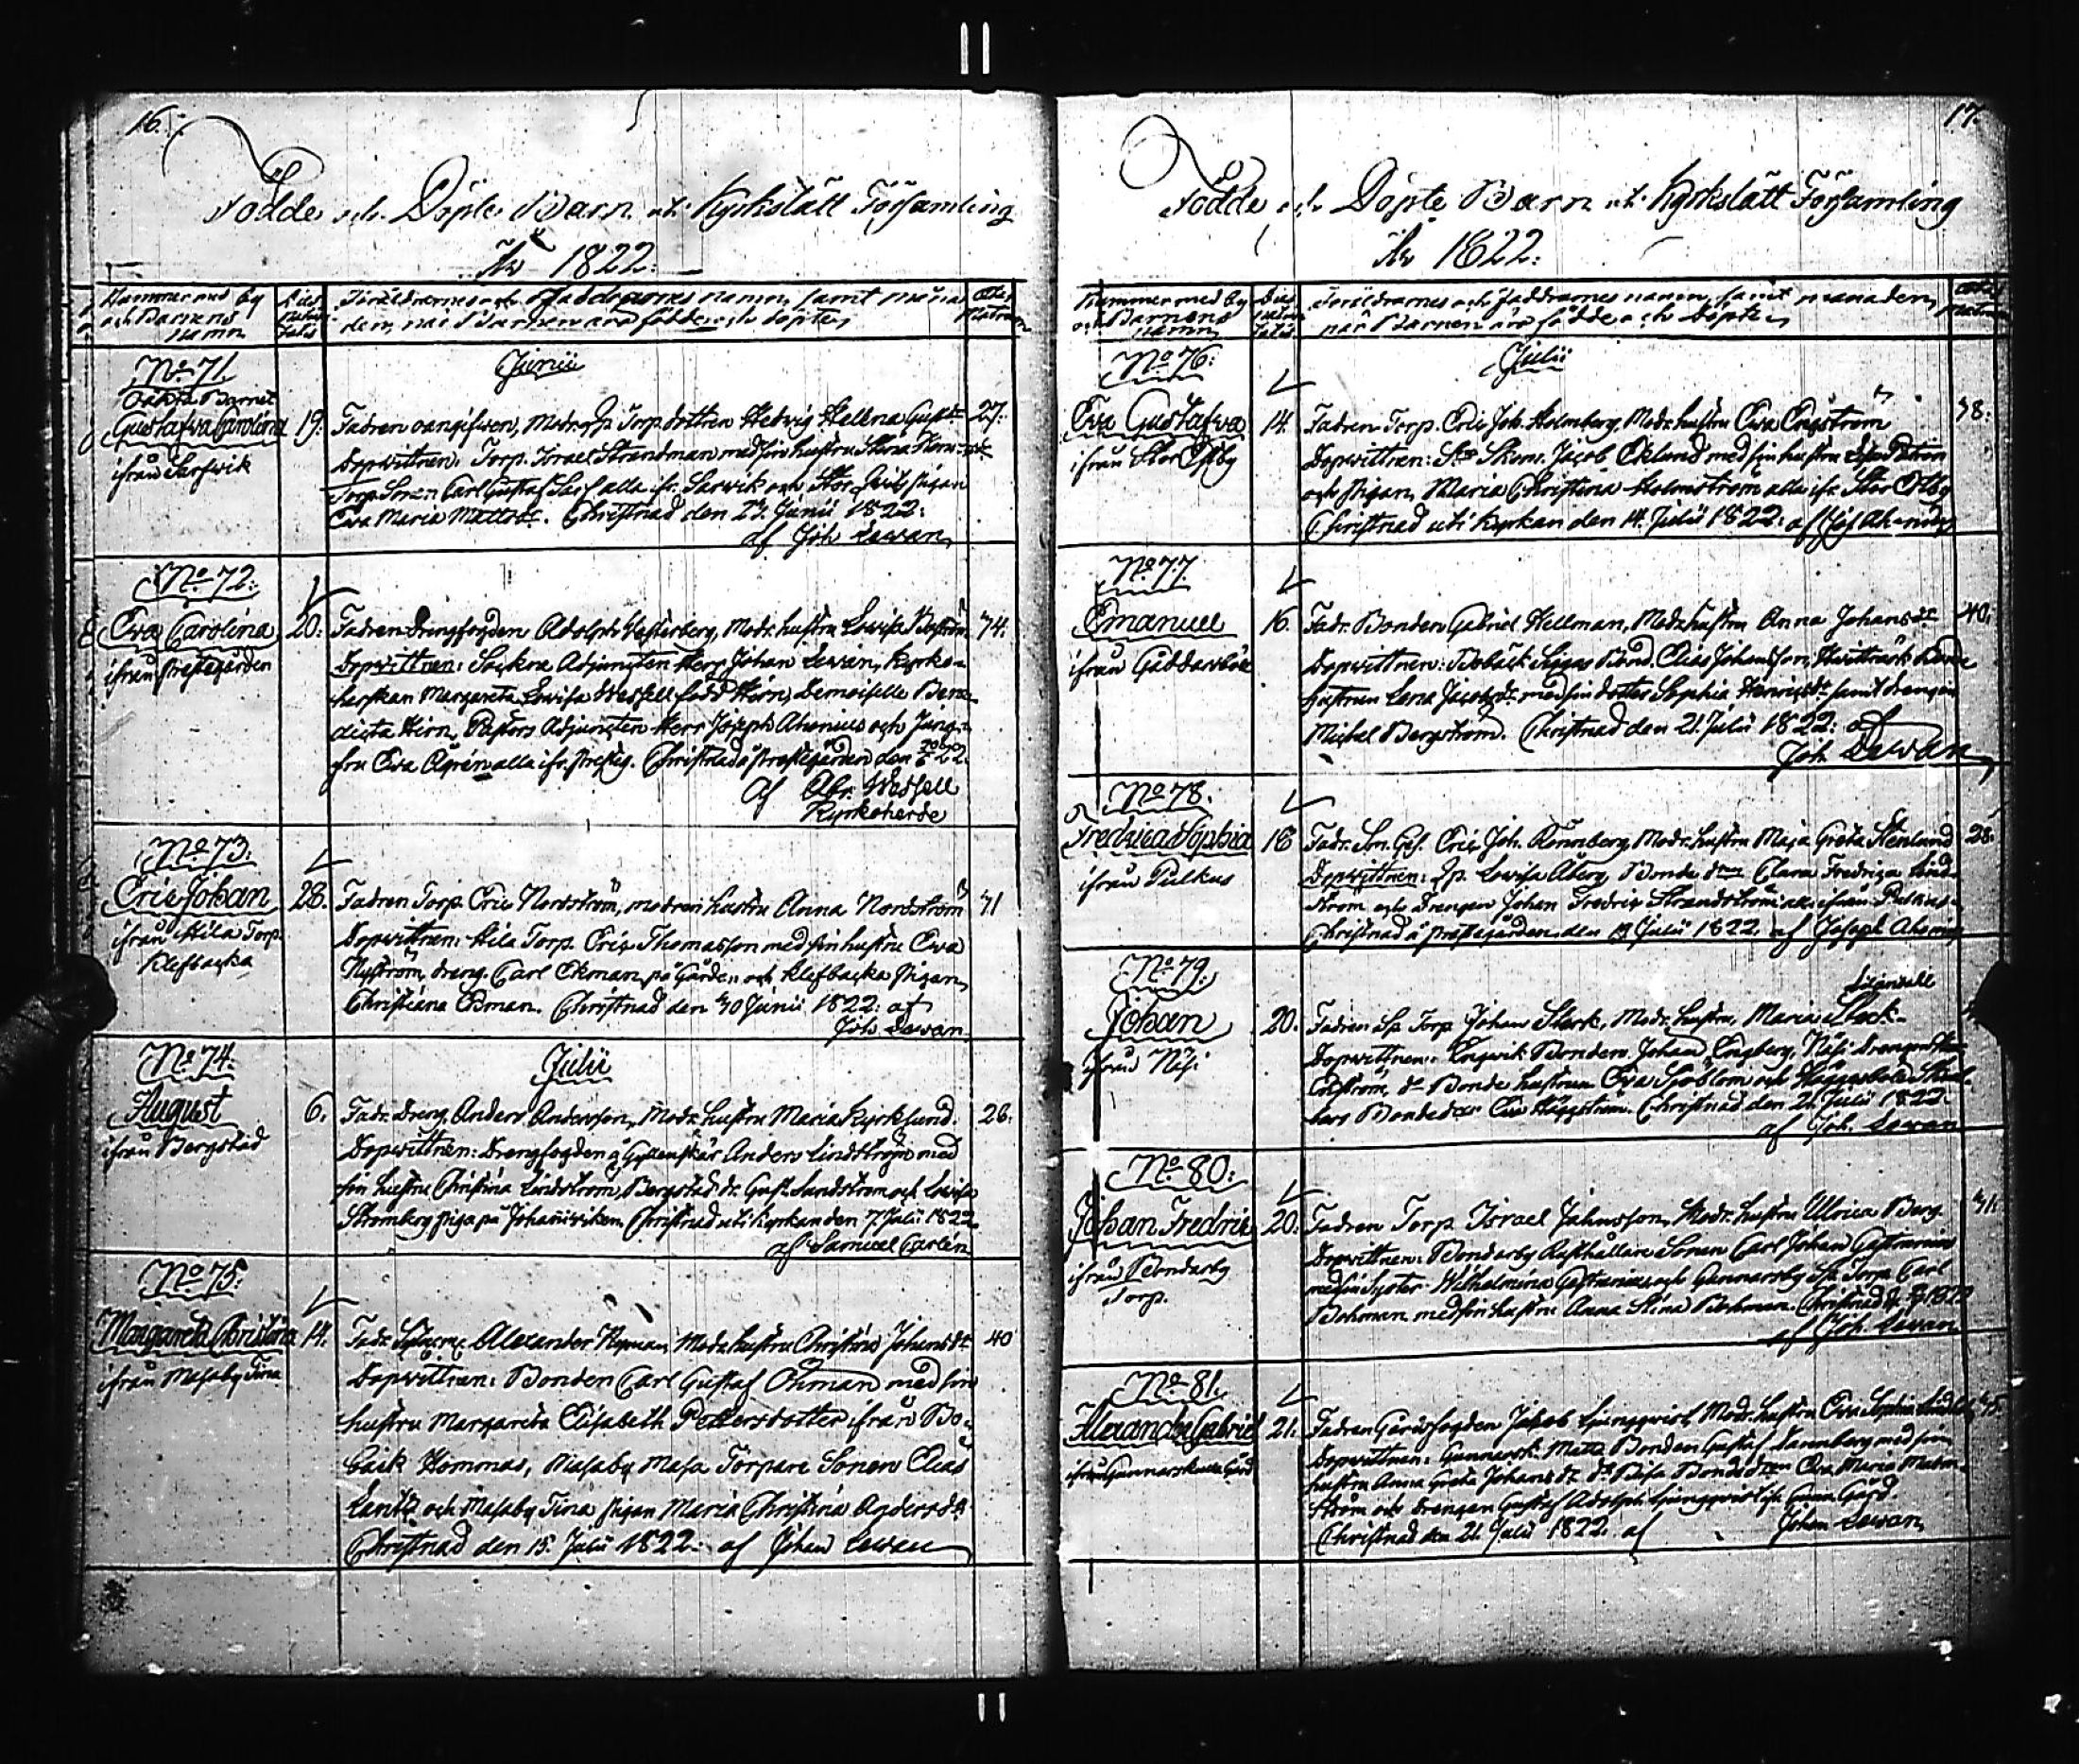 16.
Födde och Döpte Barn uti Kyrkslätt Församling
År 1822.
Nummer med By
och Barnens
namn
Dies
nata-
litis
Föräldrarnes och Faddrarnes namn, samt måna-
den, när Barnen äro födde och döpte
Ætas
Matrum
No 71.
Oäkta Barnet
Gustafva Carolina
ifrån Sarfvik
Junii
19. Fadren oangifven, Modren Torp dottren Hedvig Helena Gust: 27.
Dopvittnen: Torp. Israel Strandman med sin hustru Stina
Torp. Sonen Carl Gustaf alla ifr. Sarvik och Stor pigan
Eva Maria Mattsdr. Christnad den 27. Junii 1822.
af Joh Lewan
No 72.
Eva Carolina
ifrån Prestegården
20. Fadren Drengfogden Adolph Westerberg, Modr. hustru Lovisa 74.
Dopvittnen: Sockne Adjuncten Herr Johan Lewan, Kyrko-
herskan Margareta Lovisa Wessell född Hirn, Demoiselle Bene-
dicta Hirn, Pastors Adjuncten Herr Joseph Ahrenius och Jung-
fru Eva Ågren alla ifr. Presteg. Christnad å Prestegården den
af Abr. Wessell
Kyrkoherde
No 73.
Eric Johan
ifrån Hila Torp.
Klefbacka
28. Fadren Torp. Eric Nordström, modren hustru Anna Nordström 41
Dopvittnen: Hila Torp. Eric Thomasson med sin hustru Eva
Nyström, dreng. Carl Ekman på Gården och Klefbacka Pigan
Christiana Öman. Christnad den 30 Junii 1822. af
Joh. Lewan
No 74.
August
ifrån Bergstad
Julii
6. Fadr. Dreng. Anders Andersson, Modr. hustru Maria Kyrklund. 26.
Dopvittnen: Drengfogden å Gyllenskär Anders Lindström med
sin hustru Christina Lindström, Bergstad dr. Gust. Sundström och Lovisa
Strömberg piga på Johannviken Christnad uti Kyrkan den 7. Julii 1822.
af Samuel Carlén
No 75.
Margareta Christina
ifrån Masaby Tina
14. Fadr. Alexander Nyman, Modr. hustru Christina Johansdr. 40
Dopvittnen: Bonden Carl Gustaf Öhman med sin
hustru Margareta Elisabeth Pettersdotter ifrån Bo-
bäck Hommas, Masaby Masa Torpare Sonen Elias
Lentz och Masaby Tina pigan Maria Christina Andersdr.
Christnad den 15. Julii 1822. af Johan Lewan
17.
Födde och Döpte Barn uti Kyrkslätt Församling
År 1822.
Nummer med By
och Barnens
namn
Dies
nata-
litis
Föräldrarnes och Faddrarnes namn, samt månaden,
när Barnen äro födde och Döpte
Ætas
Matrum
No 76.
Eva Gustafva
ifrån Stor Östby
Julii
14. Fadren Torp. Eric Joh. Holmberg, Modr. hustru Eva Engström 38.
Dopvittnen: Jacob Eklund med sin hustru
och pigan, Maria Christina Holmström alla ifr. Stor Östby
Christnad uti Kyrkan den 14. Julii 1822. af
No 77.
Emanuel
ifrån Gäddarböle
16. Fadr. Bonden Gabriel Hellman, Modr. hustru Anna Johansdr 40.
Dopvittnen: Bobäck Siggas Bond. Elias Johansson, Hvitträsk Bonde
hustrun Lena Jacobsdr. med sin dotter Sophia Henricsdr samt drengen
Michel Bergström. Christnad den 21. Julii 1822. af
Joh. Lewan
No 78.
Fredrica Sophia
ifrån Pulkus
18 Fadr. Sm. Ges. Eric Joh. Rönnberg, Modr. hustru Maja Greta Stenlund 28.
Dopvittnen: Lovisa Åberg, Bonde Clara Fredrica Lind-
ström och drengen Johan Fredric Strandström
Christnad å prestegården den 19 Julii 1822. af Joseph
No 79.
Johan
ifrån Näsi
20. Fadren Torp. Johan Sterk, Modr. hustru, Maria
Dopvittnen: Engvik Bonden Johan Engberg, Näsi drengen
dr. Bonde hustrun Eva Sjöblom och Häggesböle
Bonded Eva Häggström. Christnad den 21. Julii 1822.
af Joh. Lewan
No 80.
Johan Fredric
ifrån Bondarby
Torp.
20. Fadren Torp. Israel Johnsson, Modr. hustru Ulrica Berg. 31.
Dopvittnen: Bondarby Rusthållare Sonen Carl Johan
med sin syster Wilhelmina och Gunnarsby Torp. Carl
Bohman med sin hustru Anna Stina Bohman. Christnad 1822
af Joh. Lewan
No 81.
Alexander Gabriel
ifrån Gunnarskulla Gård
21. Fadren Gårdsfogden Jakob Ljungqvist, Modr. hustru Eva Sophia
Dopvittnen: Gunnarsk. Matts Bonden Gustaf Dannberg med sin
hustru Anna Greta Johansdr. Bisa Bonded Eva Maria Malm-
ström och drengen Gustaf Adolph Ljungqvist ifr. Gunn. Gård.
Christnad den 21. Julii 1822. af Johan Lewan